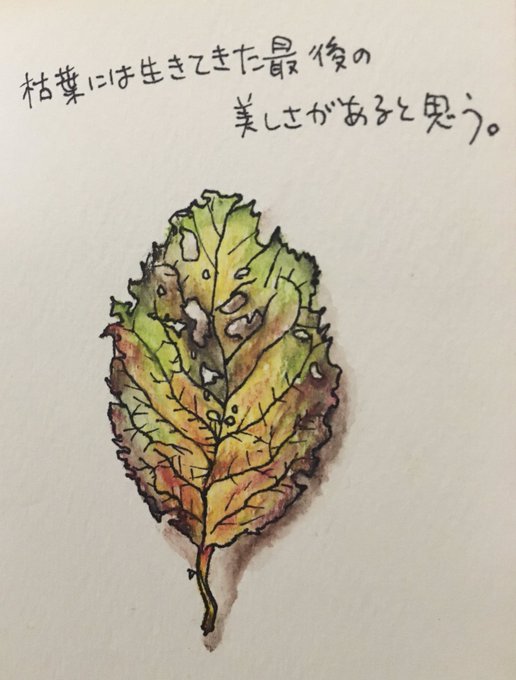 枯葉には生きてきた最後の
美しさがあると思う。